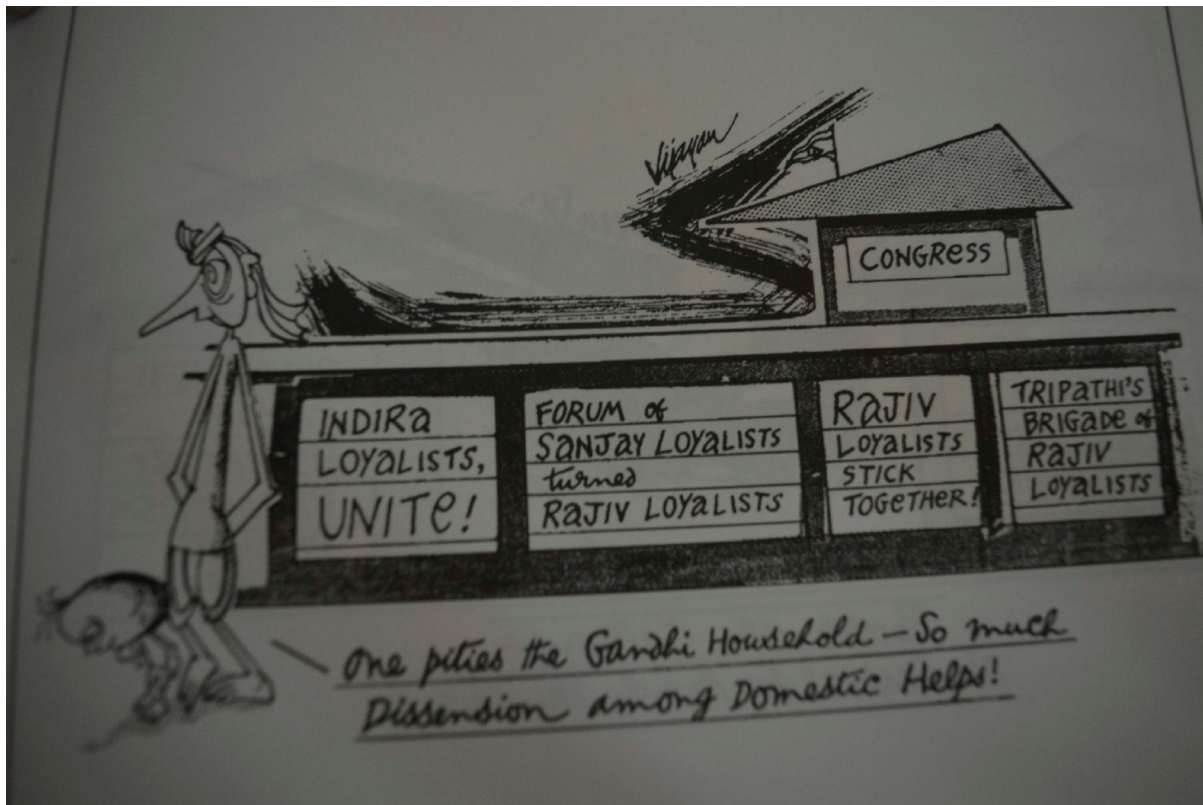 Vijayan
CONGRESS
INDIRA
LOYALISTS,
UNITE!
FORUM of
SANJAY LOYALISTS
turned
RAJIV LOYALISTS
RAJIV
LOYALISTS
STICK
TOGETHER!
TRIPATHI'S
BRIGADE of
RAJIV
LOYALISTS
One pities the Gandhi Household — So much
Dissension among Domestic Helps!